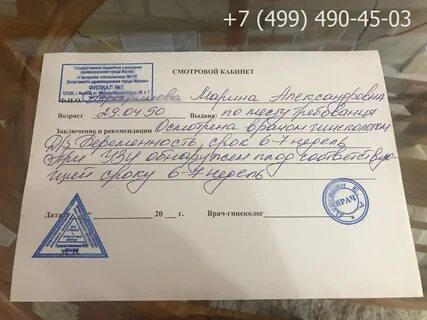 +7 (499) 490-45-03
Государственное бюджетное учреждение
здравоохранения города Москвы
«Городская поликлиника
Департамента здравоохранения города Москвы»
ФИЛИАЛ №2
СМОТРОВОЙ КАБИНЕТ
Ф.И.О. Марина Александровна
Возраст 29.04.90 Выдана: по месту требования
Заключение и рекомендации Осмотрена врачом гинекологом
Дз Беременность, срок 6-7 недель
При УЗИ обнаружен плод соответствую-
щий сроку 6-7 недель
Дата 20 г. Врач-гинеколог
ВРАЧ